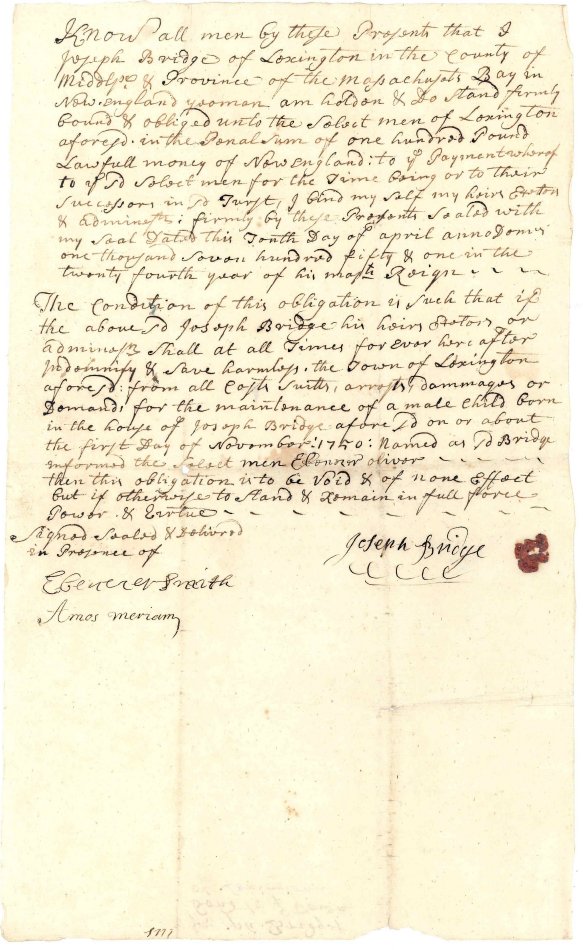 Know all men by these Presents that I
Joseph Bridge of Lexington in the County of
Middlsx & Province of the Massachusets Bay in
New england yeoman am holdon & Do Stand firmly
bound & obliged unto the Select men of Lexington
aforesd. in the Penal Sum of one hundred Pound
Lawfull money of New England: to ye Payment whereof
to ye sd Select men for the Time being or to their
Successors in sd Turst, I bind my self my heirs Exetors
& adminestrs: firmly by these Presents Sealed with
my Seal Dated this Tenth Day of april anno Domei
one thousand Seven hundred fifty & one in the
twenty fourth year of his majts Reign
The Condition of this obligation is Such that if
the above sd Joseph Bridge his heirs Exetors or
adminestrs Shall at all Times for ever here after
Indemnify & Save harmless the Town of Lexington
aforesd: from all Costs Suitts, arrests dammages or
Demands for the maintenance of a male Child born
in the house of Joseph Bridge aforesd on or about
the first Day of November: 1750: Named as sd Bridge
informed the Select men Ebenezer oliver
then this obligation is to be Void & of none Effect
but if otherwise to Stand & Remain in full force
Power & Virtue
Signed Sealed & Delivered
in Presence of
Joseph Bridge
Ebenezer Smith
Amos meriam